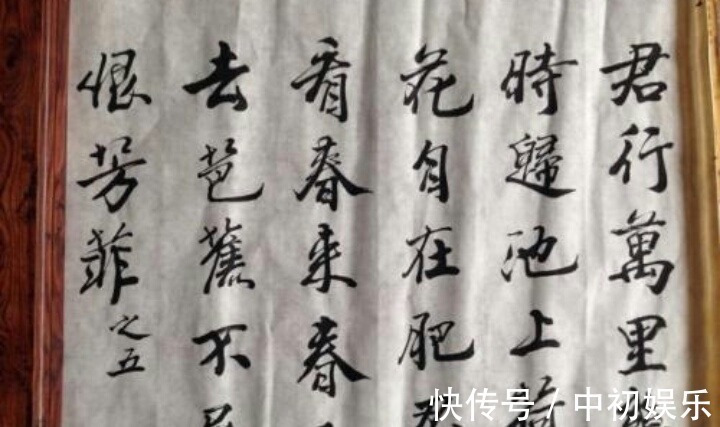 君行萬里
時歸池上
花自在肥
看春来春
去芭蕉不
恨芳菲之五
快传号/中初娱乐